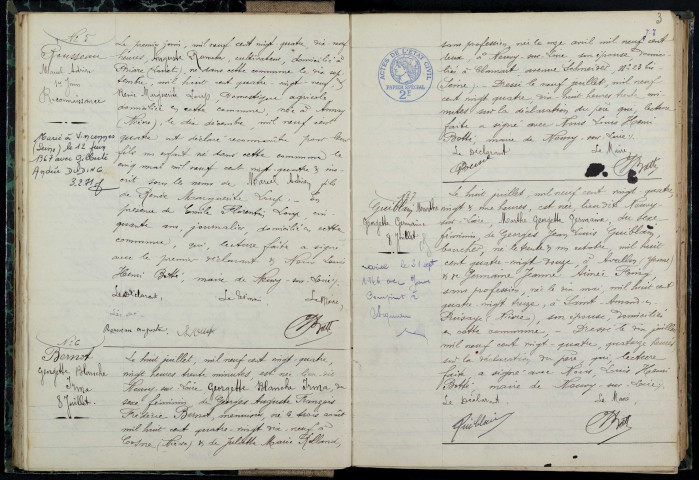 N° 5
Rousseau
Marcel Adrien
1er Juin
Reconnaissance
Marié à Vincennes
(Seine) le 12 Juin
1947 avec Gilberte
Andrée
Le premier juin, mil neuf cent vingt quatre, dix neuf
heures, Auguste Rousseau, cultivateur, domicilié à
Briare (Loiret), né dans cette commune le dix sep
tembre, mil huit cent quatre vingt neuf &
Renée Marguerite Loup Domestique agricole
domiciliée en cette commune, née à Annay
(Nièvre), le dix décembre, mil neuf cent
quatre ont déclaré reconnaître pour leur
fils un enfant né dans cette commune le
cinq mai mil neuf cent vingt quatre & ins
crit sous le nom de Marcel Adrien fils
de Renée Marguerite Loup. En
présence de Emile Florentin Loup, cin
quante ans, journalier, domicilié en cette
commune, qui, lecture faite a signé
avec le premier déclarant & Nous Louis
Henri Botté, maire de Neuvy-sur-Loire.
Le Déclarant, Le Témoin Le Maire,
Rousseau auguste
N° 6
Bernot
Georgette Blanche
Irma
8 Juillet
Le huit juillet, mil neuf cent vingt quatre,
vingt heures trente minutes est née
Neuvy-sur-Loire Georgette Blanche Irma, du
sexe féminin de Georges Auguste François
Frédéric Bernot, né le trois août
mil huit cent quatre-vingt dix-neuf à
Cosne (Nièvre) & de Juliette Marie Rolland,
3
ACTES DE L'ÉTAT CIVIL
PAPIER SPÉCIAL
2F
sans profession, née le onze avril mil neuf cent
deux, à Neuvy-sur-Loire, son épouse domici
liés à Clamart avenue Schneider, N° 23 bis
(Seine). – Dressé le neuf juillet, mil neuf
cent vingt quatre dix huit heures trente mi
nutes sur la déclaration du père qui, lecture
faite a signé avec Nous Louis Henri
Botté, maire de Neuvy-sur-Loire.
Le Déclarant Le Maire,
N° 7
Guiblain Marthe
Georgette Germaine
8 Juillet
Le huit juillet, mil neuf cent vingt quatre,
vingt & une heures, est née Neuvy
sur-Loire Marthe Georgette Germaine, du sexe
féminin de Georges Jean Louis Guiblain,
né le trente & un octobre, mil huit
cent quatre-vingt à Avallon (Yonne)
& de Germaine Jeanne Aimée
sans profession, née le dix mai, mil huit cent
quatre vingt treize, à Saint-Amand-en-
Puisaye (Nièvre), son épouse Domiciliés
en cette commune. – Dressé le dix juillet
mil neuf cent vingt-quatre, quatorze heures
sur la déclaration du père qui, lecture
faite a signé avec Nous, Louis Henri
Botté maire de Neuvy-sur-Loire.
Le Déclarant, Le Maire
Guiblain